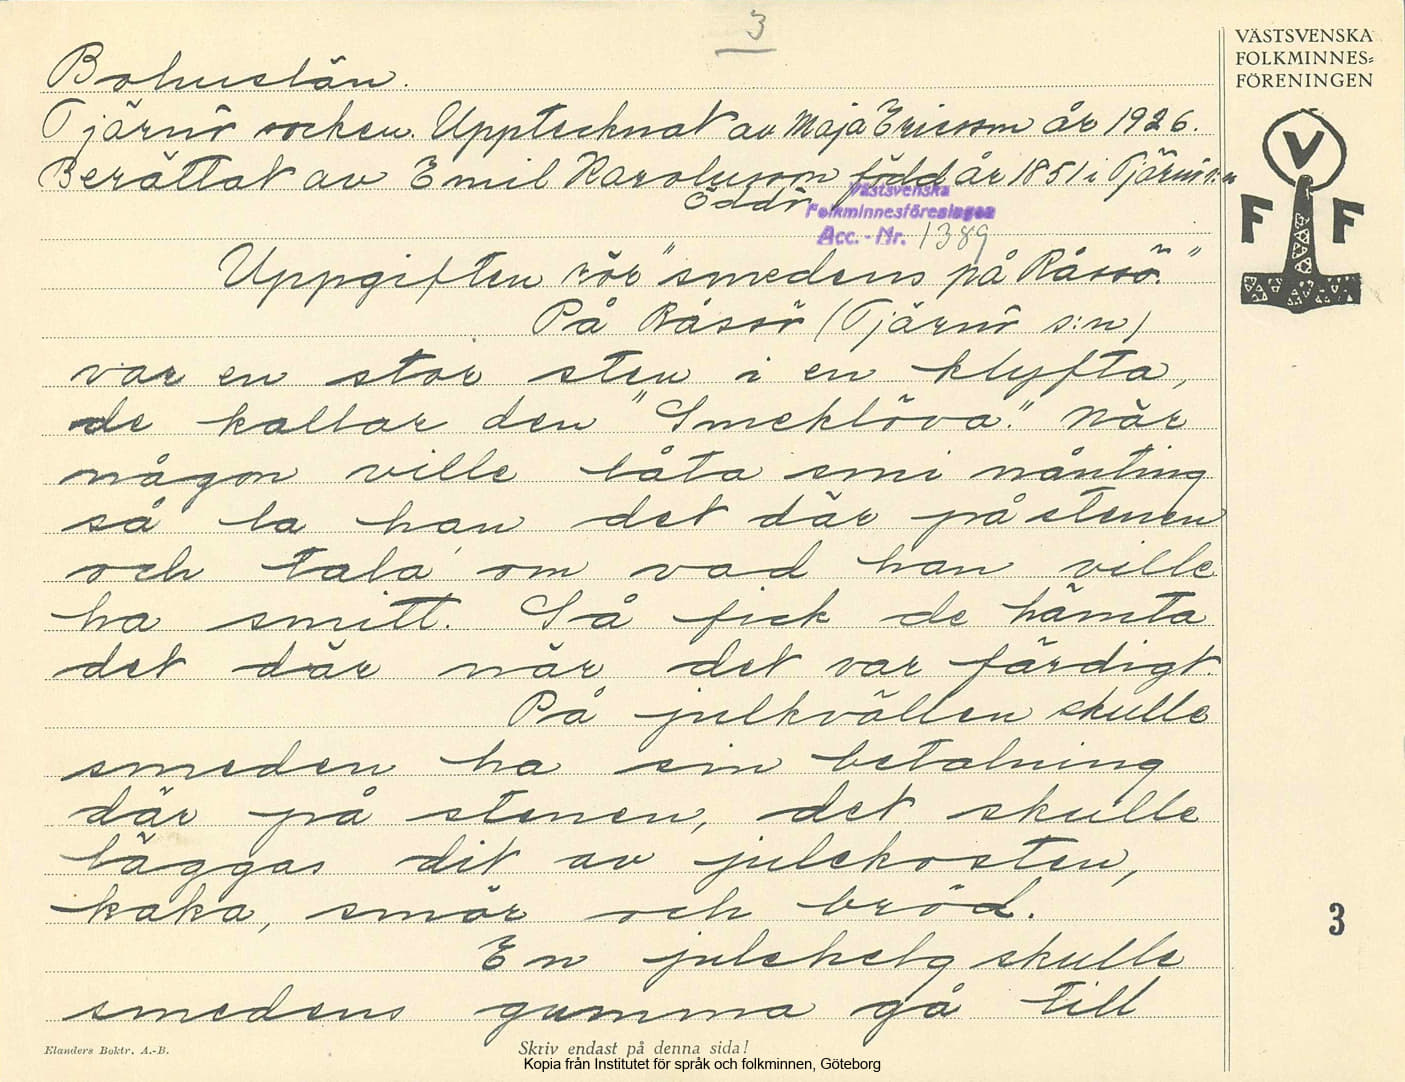 3
Bohuslän.
Tjärnö socken. Upptecknat av Maja Ericson år 1926.
Berättat av Emil Karolusson född år 1851 i Tjärnö s:n
Öddö
Västsvenska
Folkminnesföreningen
Acc. - Nr. 1389
Uppgiften rör "smedens på Råssö."
På Råssö (Tjärnö s:n)
var en stor sten i en klyfta,
de kallar den "Smeklöva." När
någon ville låta smi nånting
så la han det där på stenen
och tala om vad han ville
ha smitt. Så fick de hämta
det där när det var färdigt.
På julkvällen skulle
smeden ha sin betalning
där på stenen, det skulle
läggas dit av julekosten,
kaka, smör och bröd.
En julehelg skulle
smedens gumma gå till
Elanders Boktr. A.-B.
Skriv endast på denna sida!
Kopia från Institutet för språk och folkminnen, Göteborg
VÄSTSVENSKA
FOLKMINNES=
FÖRENINGEN
V
F F
3